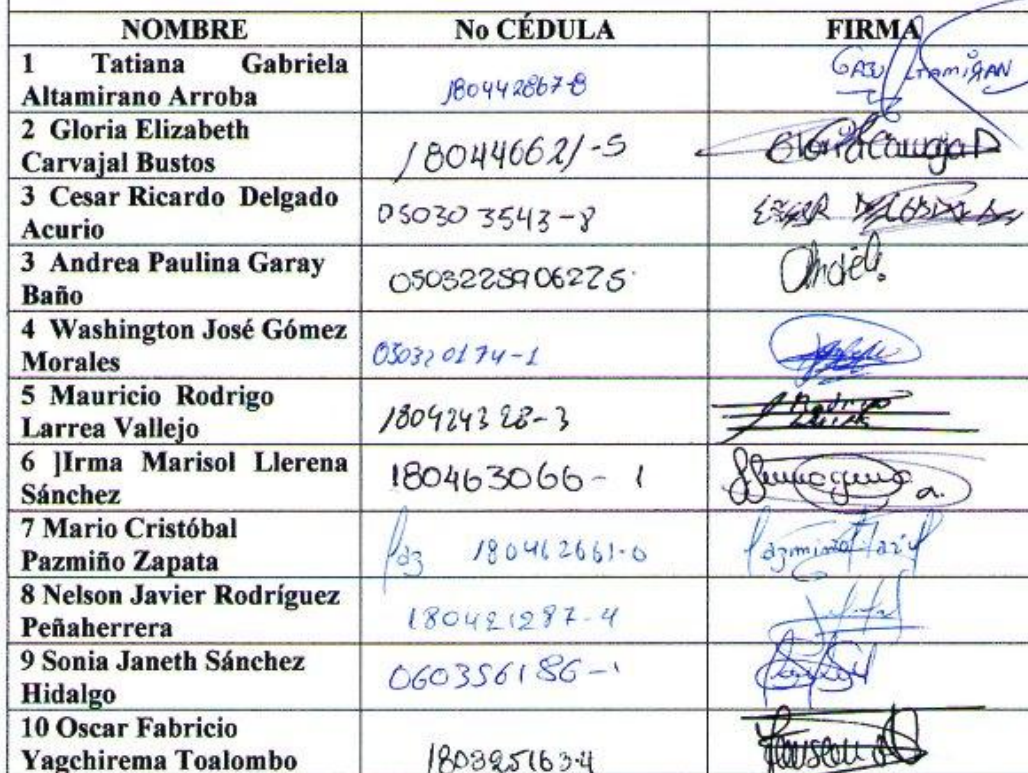 NOMBRE No CÉDULA FIRMA
1 Tatiana Gabriela
Altamirano Arroba 180442867-8
2 Gloria Elizabeth
Carvajal Bustos 180446621-5 Gloria Carvajal
3 Cesar Ricardo Delgado
Acurio 050303543-8
3 Andrea Paulina Garay
Baño 0503225906225
4 Washington José Gómez
Morales 050320174-1
5 Mauricio Rodrigo
Larrea Vallejo 180424328-3
6 ]Irma Marisol Llerena
Sánchez 180463066-1
7 Mario Cristóbal
Pazmiño Zapata Paz 180462661-0
8 Nelson Javier Rodríguez
Peñaherrera 180421287-4
9 Sonia Janeth Sánchez
Hidalgo 060356186-1
10 Oscar Fabricio
Yagchirema Toalombo 180325163-4